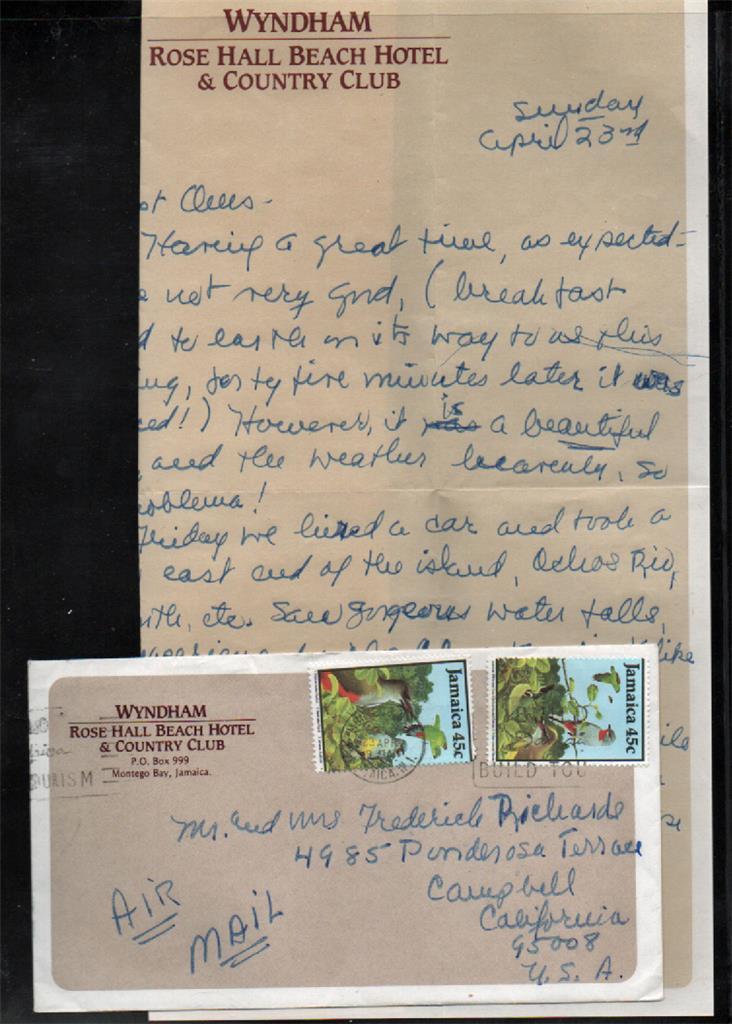 WYNDHAM
ROSE HALL BEACH HOTEL
& COUNTRY CLUB
Sunday
April 23rd
st Ones -
Having a great time, as expected -
not very good, (breakfast
d to earth on its way to us this
ing, forty five minutes later it was
ced!) However, it is a beautiful
, and the weather heavenly, so
roblema!
Friday we hired a car and took a
east end of the island, Ochos Rio,
ith, etc. Saw gorgeous water falls,
like
WYNDHAM
ROSE HALL BEACH HOTEL
& COUNTRY CLUB
P.O. Box 999
Montego Bay, Jamaica.
Jamaica 45c
Jamaica 45c
URISM
BUILD YOU
Mr. and Mrs Frederick Richards
4985 Ponderosa Terrace
Campbell
California
95008
U.S.A.
AIR
MAIL